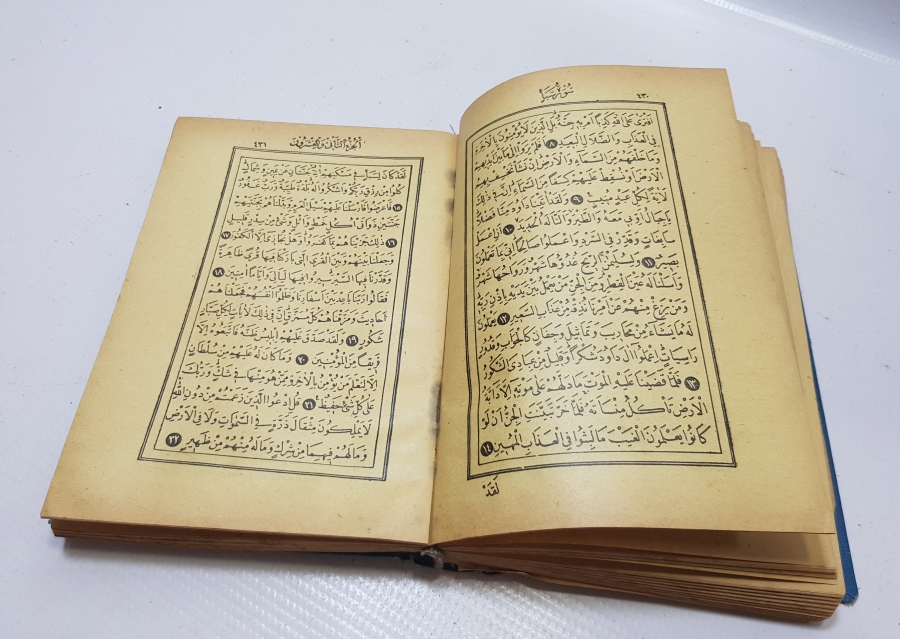 سُورَةُ سَبَأ ٤٣٠
اَفْتَرٰى عَلَى اللّٰهِ كَذِبًا اَمْ بِه۪ جِنَّةٌ بَلِ الَّذ۪ينَ لَا يُؤْمِنُونَ بِالْاٰخِرَةِ
فِي الْعَذَابِ وَالضَّلَالِ الْبَع۪يدِ ٨ اَفَلَمْ يَرَوْا اِلٰى مَا بَيْنَ اَيْد۪يهِمْ
وَمَا خَلْفَهُمْ مِنَ السَّمَاءِ وَالْاَرْضِ اِنْ نَشَأْ نَخْسِفْ بِهِمُ
الْاَرْضَ اَوْ نُسْقِطْ عَلَيْهِمْ كِسَفًا مِنَ السَّمَاءِ اِنَّ ف۪ي ذٰلِكَ
لَاٰيَةً لِكُلِّ عَبْدٍ مُن۪يبٍ ٩ وَلَقَدْ اٰتَيْنَا دَاوُدَ مِنَّا فَضْلًا
يَا جِبَالُ اَوِّب۪ي مَعَهُ وَالطَّيْرَ وَاَلَنَّا لَهُ الْحَد۪يدَ ١٠ اَنِ اعْمَلْ
سَابِغَاتٍ وَقَدِّرْ فِي السَّرْدِ وَاعْمَلُوا صَالِحًا اِنّ۪ي بِمَا تَعْمَلُونَ
بَص۪يرٌ ١١ وَلِسُلَيْمٰنَ الرّ۪يحَ غُدُوُّهَا شَهْرٌ وَرَوَاحُهَا شَهْرٌ
وَاَسَلْنَا لَهُ عَيْنَ الْقِطْرِ وَمِنَ الْجِنِّ مَنْ يَعْمَلُ بَيْنَ يَدَيْهِ بِاِذْنِ رَبِّه۪
وَمَنْ يَزِغْ مِنْهُمْ عَنْ اَمْرِنَا نُذِقْهُ مِنْ عَذَابِ السَّع۪يرِ ١٢ يَعْمَلُونَ
لَهُ مَا يَشَاءُ مِنْ مَحَار۪يبَ وَتَمَاث۪يلَ وَجِفَانٍ كَالْجَوَابِ وَقُدُورٍ
رَاسِيَاتٍ اِعْمَلُوا اٰلَ دَاوُدَ شُكْرًا وَقَل۪يلٌ مِنْ عِبَادِيَ الشَّكُورُ
١٣ فَلَمَّا قَضَيْنَا عَلَيْهِ الْمَوْتَ مَا دَلَّهُمْ عَلٰى مَوْتِه۪ اِلَّا دَابَّةُ
الْاَرْضِ تَأْكُلُ مِنْسَأَتَهُ فَلَمَّا خَرَّ تَبَيَّنَتِ الْجِنُّ اَنْ لَوْ
كَانُوا يَعْلَمُونَ الْغَيْبَ مَا لَبِثُوا فِي الْعَذَابِ الْمُه۪ينِ ١٤
لَقَدْ
اَلْجُزْءُ الثَّانِي وَالْعِشْرُونَ ٤٣١
لَقَدْ كَانَ لِسَبَأٍ ف۪ي مَسْكَنِهِمْ اٰيَةٌ جَنَّتَانِ عَنْ يَم۪ينٍ وَشِمَالٍ
كُلُوا مِنْ رِزْقِ رَبِّكُمْ وَاشْكُرُوا لَهُ بَلْدَةٌ طَيِّبَةٌ وَرَبٌّ غَفُورٌ
١٥ فَاَعْرَضُوا فَاَرْسَلْنَا عَلَيْهِمْ سَيْلَ الْعَرِمِ وَبَدَّلْنَاهُمْ بِجَنَّتَيْهِمْ
جَنَّتَيْنِ ذَوَاتَيْ اُكُلٍ خَمْطٍ وَاَثْلٍ وَشَيْءٍ مِنْ سِدْرٍ قَل۪يلٍ
١٦ ذٰلِكَ جَزَيْنَاهُمْ بِمَا كَفَرُوا وَهَلْ نُجَاز۪ي اِلَّا الْكَفُورَ ١٧
وَجَعَلْنَا بَيْنَهُمْ وَبَيْنَ الْقُرَى الَّت۪ي بَارَكْنَا ف۪يهَا قُرًى ظَاهِرَةً
وَقَدَّرْنَا ف۪يهَا السَّيْرَ س۪يرُوا ف۪يهَا لَيَالِيَ وَاَيَّامًا اٰمِن۪ينَ ١٨
فَقَالُوا رَبَّنَا بَاعِدْ بَيْنَ اَسْفَارِنَا وَظَلَمُوا اَنْفُسَهُمْ فَجَعَلْنَاهُمْ
اَحَاد۪يثَ وَمَزَّقْنَاهُمْ كُلَّ مُمَزَّقٍ اِنَّ ف۪ي ذٰلِكَ لَاٰيَاتٍ لِكُلِّ صَبَّارٍ
شَكُورٍ ١٩ وَلَقَدْ صَدَّقَ عَلَيْهِمْ اِبْل۪يسُ ظَنَّهُ فَاتَّبَعُوهُ اِلَّا
فَر۪يقًا مِنَ الْمُؤْمِن۪ينَ ٢٠ وَمَا كَانَ لَهُ عَلَيْهِمْ مِنْ سُلْطَانٍ
اِلَّا لِنَعْلَمَ مَنْ يُؤْمِنُ بِالْاٰخِرَةِ مِمَّنْ هُوَ مِنْهَا ف۪ي شَكٍّ وَرَبُّكَ
عَلٰى كُلِّ شَيْءٍ حَف۪يظٌ ٢١ قُلِ ادْعُوا الَّذ۪ينَ زَعَمْتُمْ مِنْ دُونِ اللّٰهِ
لَا يَمْلِكُونَ مِثْقَالَ ذَرَّةٍ فِي السَّمٰوَاتِ وَلَا فِي الْاَرْضِ
وَمَا لَهُمْ ف۪يهِمَا مِنْ شِرْكٍ وَمَا لَهُ مِنْهُمْ مِنْ ظَه۪يرٍ ٢٢